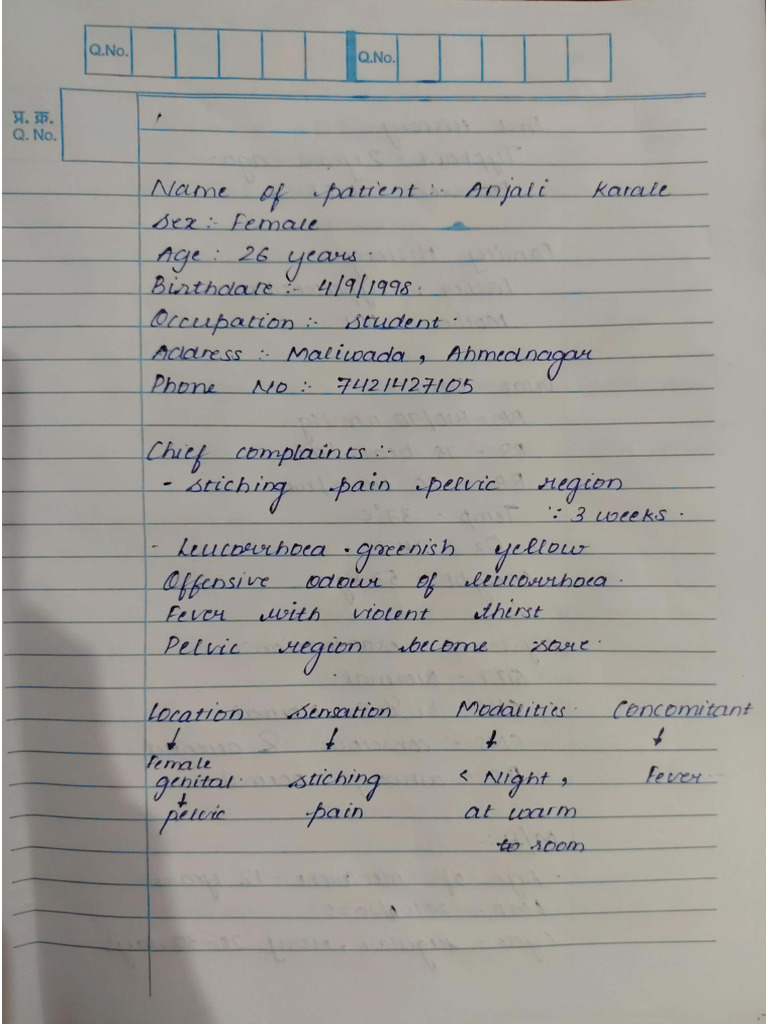 Q.No. Q.No.
प्र. क्र.
Q. No.
Name of patient :- Anjali Karale
Sex :- Female
Age : 26 years.
Birthdate :- 4/9/1998.
Occupation :- Student.
Address :- Maliwada, Ahmednagar
Phone No :- 7421427105
Chief complaints :-
- stiching pain pelvic region
∵ 3 weeks.
- Leucorrhoea . greenish yellow
Offensive odour of leucorrhoea.
Fever with violent thirst
Pelvic region become sore.
Location Sensation Modalities. Concomitant
↓ ↓ ↓ ↓
Female
genital. stiching < Night, Fever.
↓
pelvic pain at warm
to room